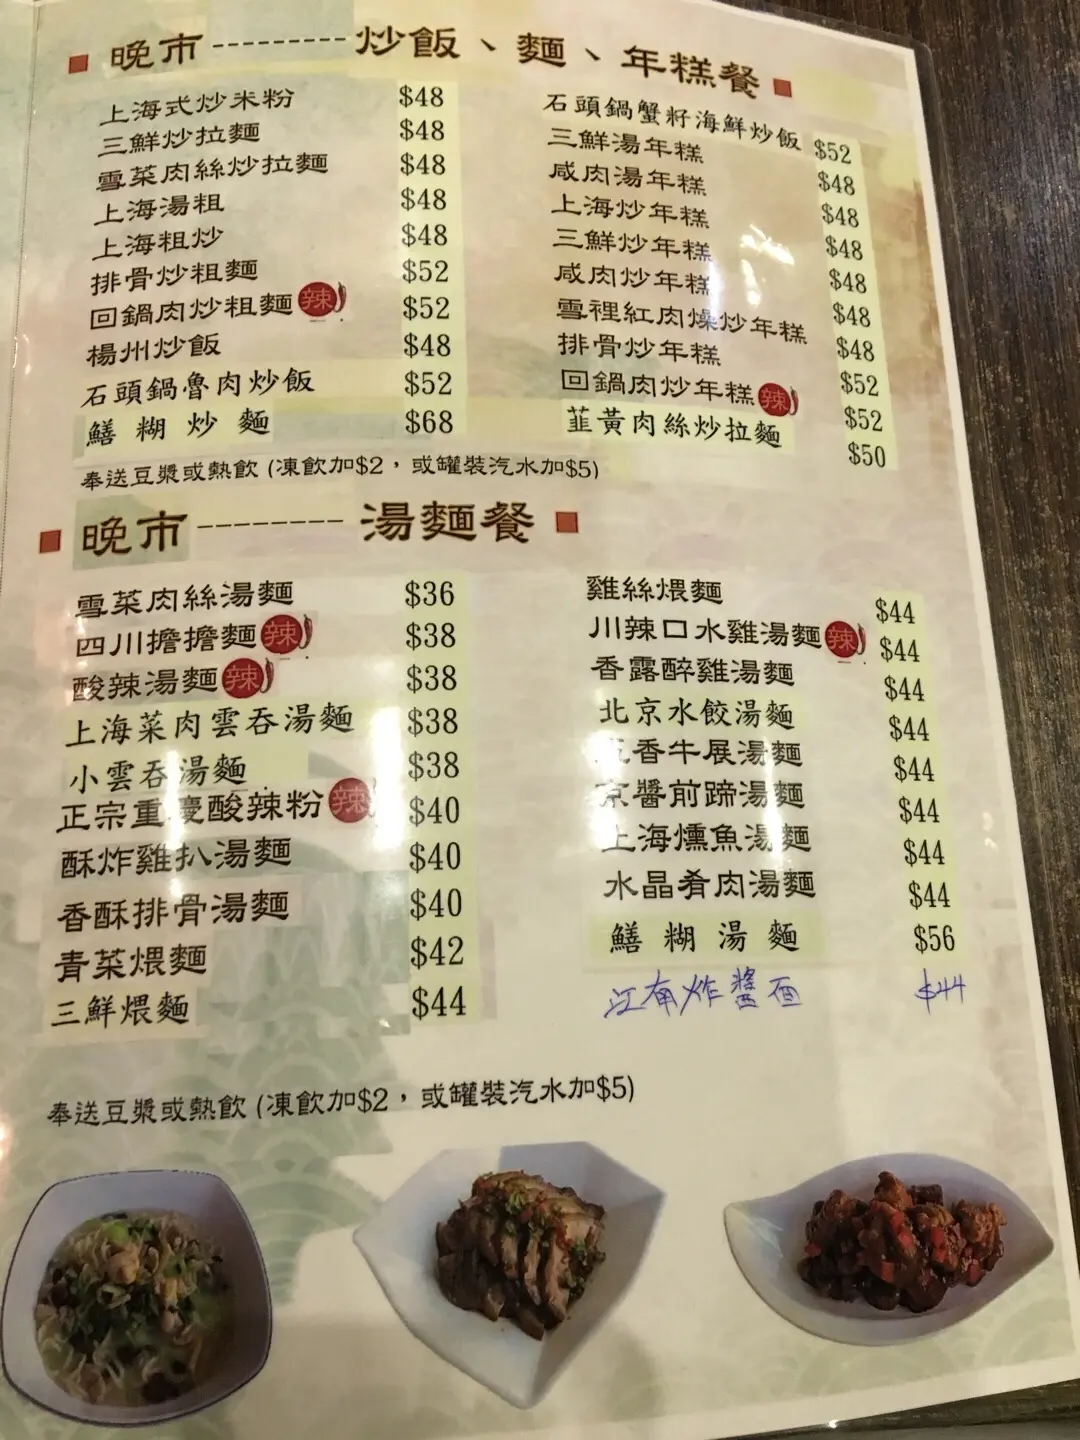 晚市---------炒飯、麵、年糕餐
上海式炒米粉 $48
三鮮炒拉麵 $48
雪菜肉絲炒拉麵 $48
上海湯粗 $48
上海粗炒 $48
排骨炒粗麵 $52
回鍋肉炒粗麵 辣 $52
楊州炒飯 $48
石頭鍋魯肉炒飯 $52
鱔糊炒麵 $68
石頭鍋蟹籽海鮮炒飯 $52
三鮮湯年糕 $48
咸肉湯年糕 $48
上海炒年糕 $48
三鮮炒年糕 $48
咸肉炒年糕 $48
雪裡紅肉燥炒年糕 $48
排骨炒年糕 $52
回鍋肉炒年糕 辣 $52
韮黃肉絲炒拉麵 $50
奉送豆漿或熱飲 (凍飲加$2，或罐裝汽水加$5)
晚市--------湯麵餐
雪菜肉絲湯麵 $36
四川擔擔麵 辣 $38
酸辣湯麵 辣 $38
上海菜肉雲吞湯麵 $38
小雲吞湯麵 $38
正宗重慶酸辣粉 辣 $40
酥炸雞扒湯麵 $40
香酥排骨湯麵 $40
青菜煨麵 $42
三鮮煨麵 $44
雞絲煨麵 $44
川辣口水雞湯麵 辣 $44
香露醉雞湯麵 $44
北京水餃湯麵 $44
香牛展湯麵 $44
京醬前蹄湯麵 $44
上海燻魚湯麵 $44
水晶肴肉湯麵 $44
鱔糊湯麵 $56
江南炸醬面 $44
奉送豆漿或熱飲 (凍飲加$2，或罐裝汽水加$5)